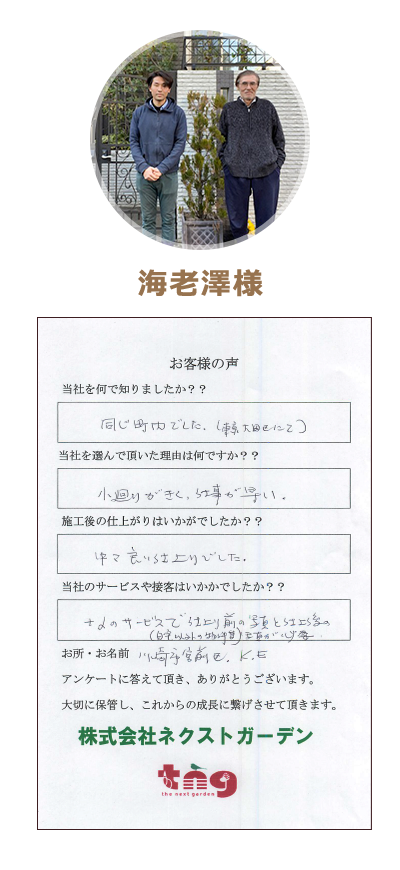 海老澤様
お客様の声
当社を何で知りましたか？？
同じ町内でした.(東京大田区にて)
当社を選んで頂いた理由は何ですか？？
小廻りがきく、仕事が早い.
施工後の仕上がりはいかがでしたか？？
中々良い仕上りでした.
当社のサービスや接客はいかかでしたか？？
+αのサービスで仕上り前の写真と仕上后の
お所・お名前 川崎市宮前区. K.E
アンケートに答えて頂き、ありがとうございます。
大切に保管し、これからの成長に繋げさせて頂きます。
株式会社ネクストガーデン
tng
the next garden